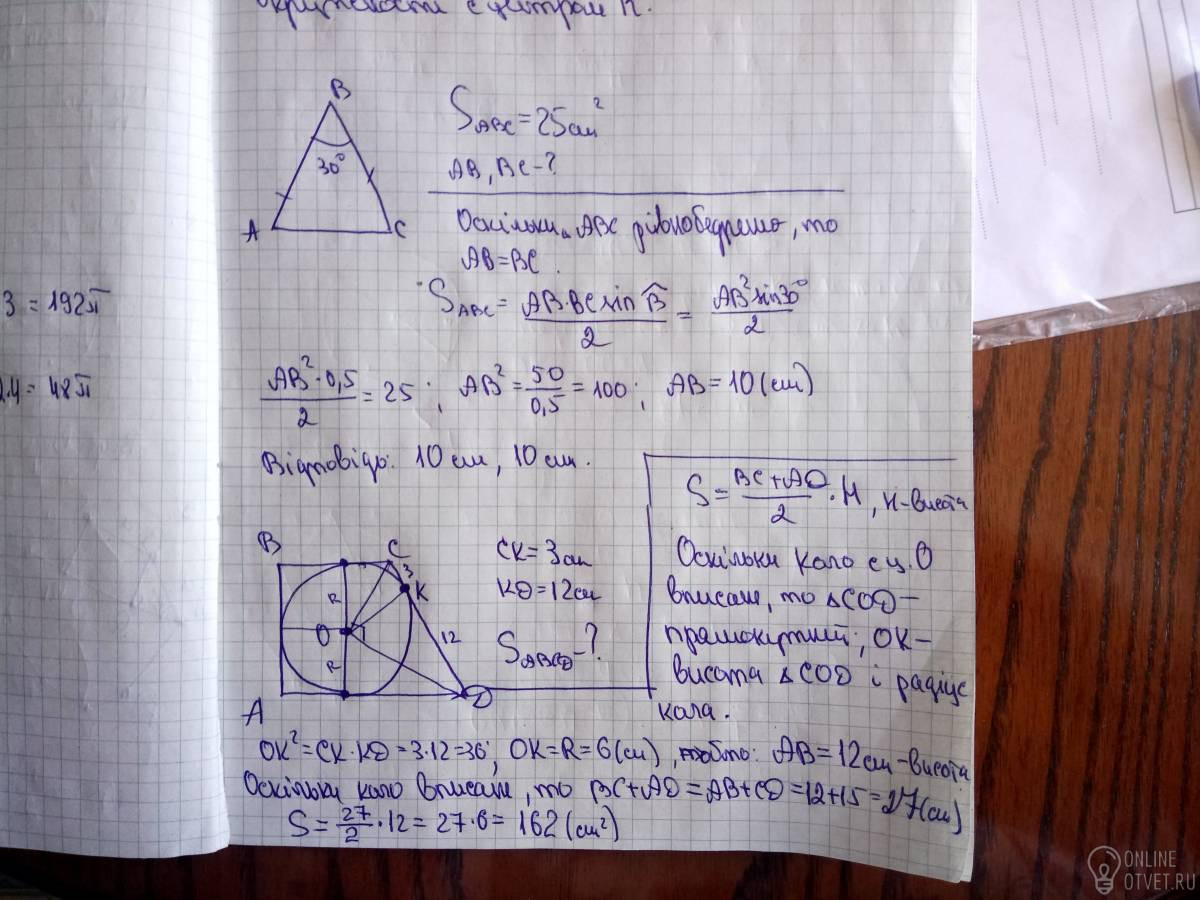 окружности с центром
B
30°
A
C
S ABC = 25 см²
AB, BC - ?
Оскільки ABC рівнобедрено, то
AB = BC.
S ABC = AB·BC sin B / 2 = AB² sin 30° / 2
3 = 192π
2·4 = 48π
AB²·0,5 / 2 = 25; AB² = 50 / 0,5 = 100; AB = 10 (см)
Відповідь: 10 см, 10 см.
B
C
3
K
R
O
R
12
A
D
CK = 3 см
KD = 12 см
S ABCD - ?
S = BC + AD / 2 · H, H - висота
Оскільки коло с ц. O
вписане, то △COD -
прямокутний; OK -
висота △COD і радіус
кола.
OK² = CK·KD = 3·12 = 36; OK = R = 6 (см), тобто: AB = 12 см - висота
Оскільки коло вписане, то BC + AD = AB + CD = 12 + 15 = 27 (см)
S = 27 / 2 · 12 = 27·6 = 162 (см²)
ONLINE
OTVET.RU